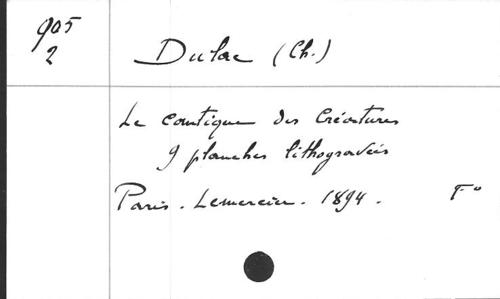 905
2
Dulac (Ch.)
Le Cantique des Créatures
9 planches lithogravées
Paris. Lemercier. 1894. F°